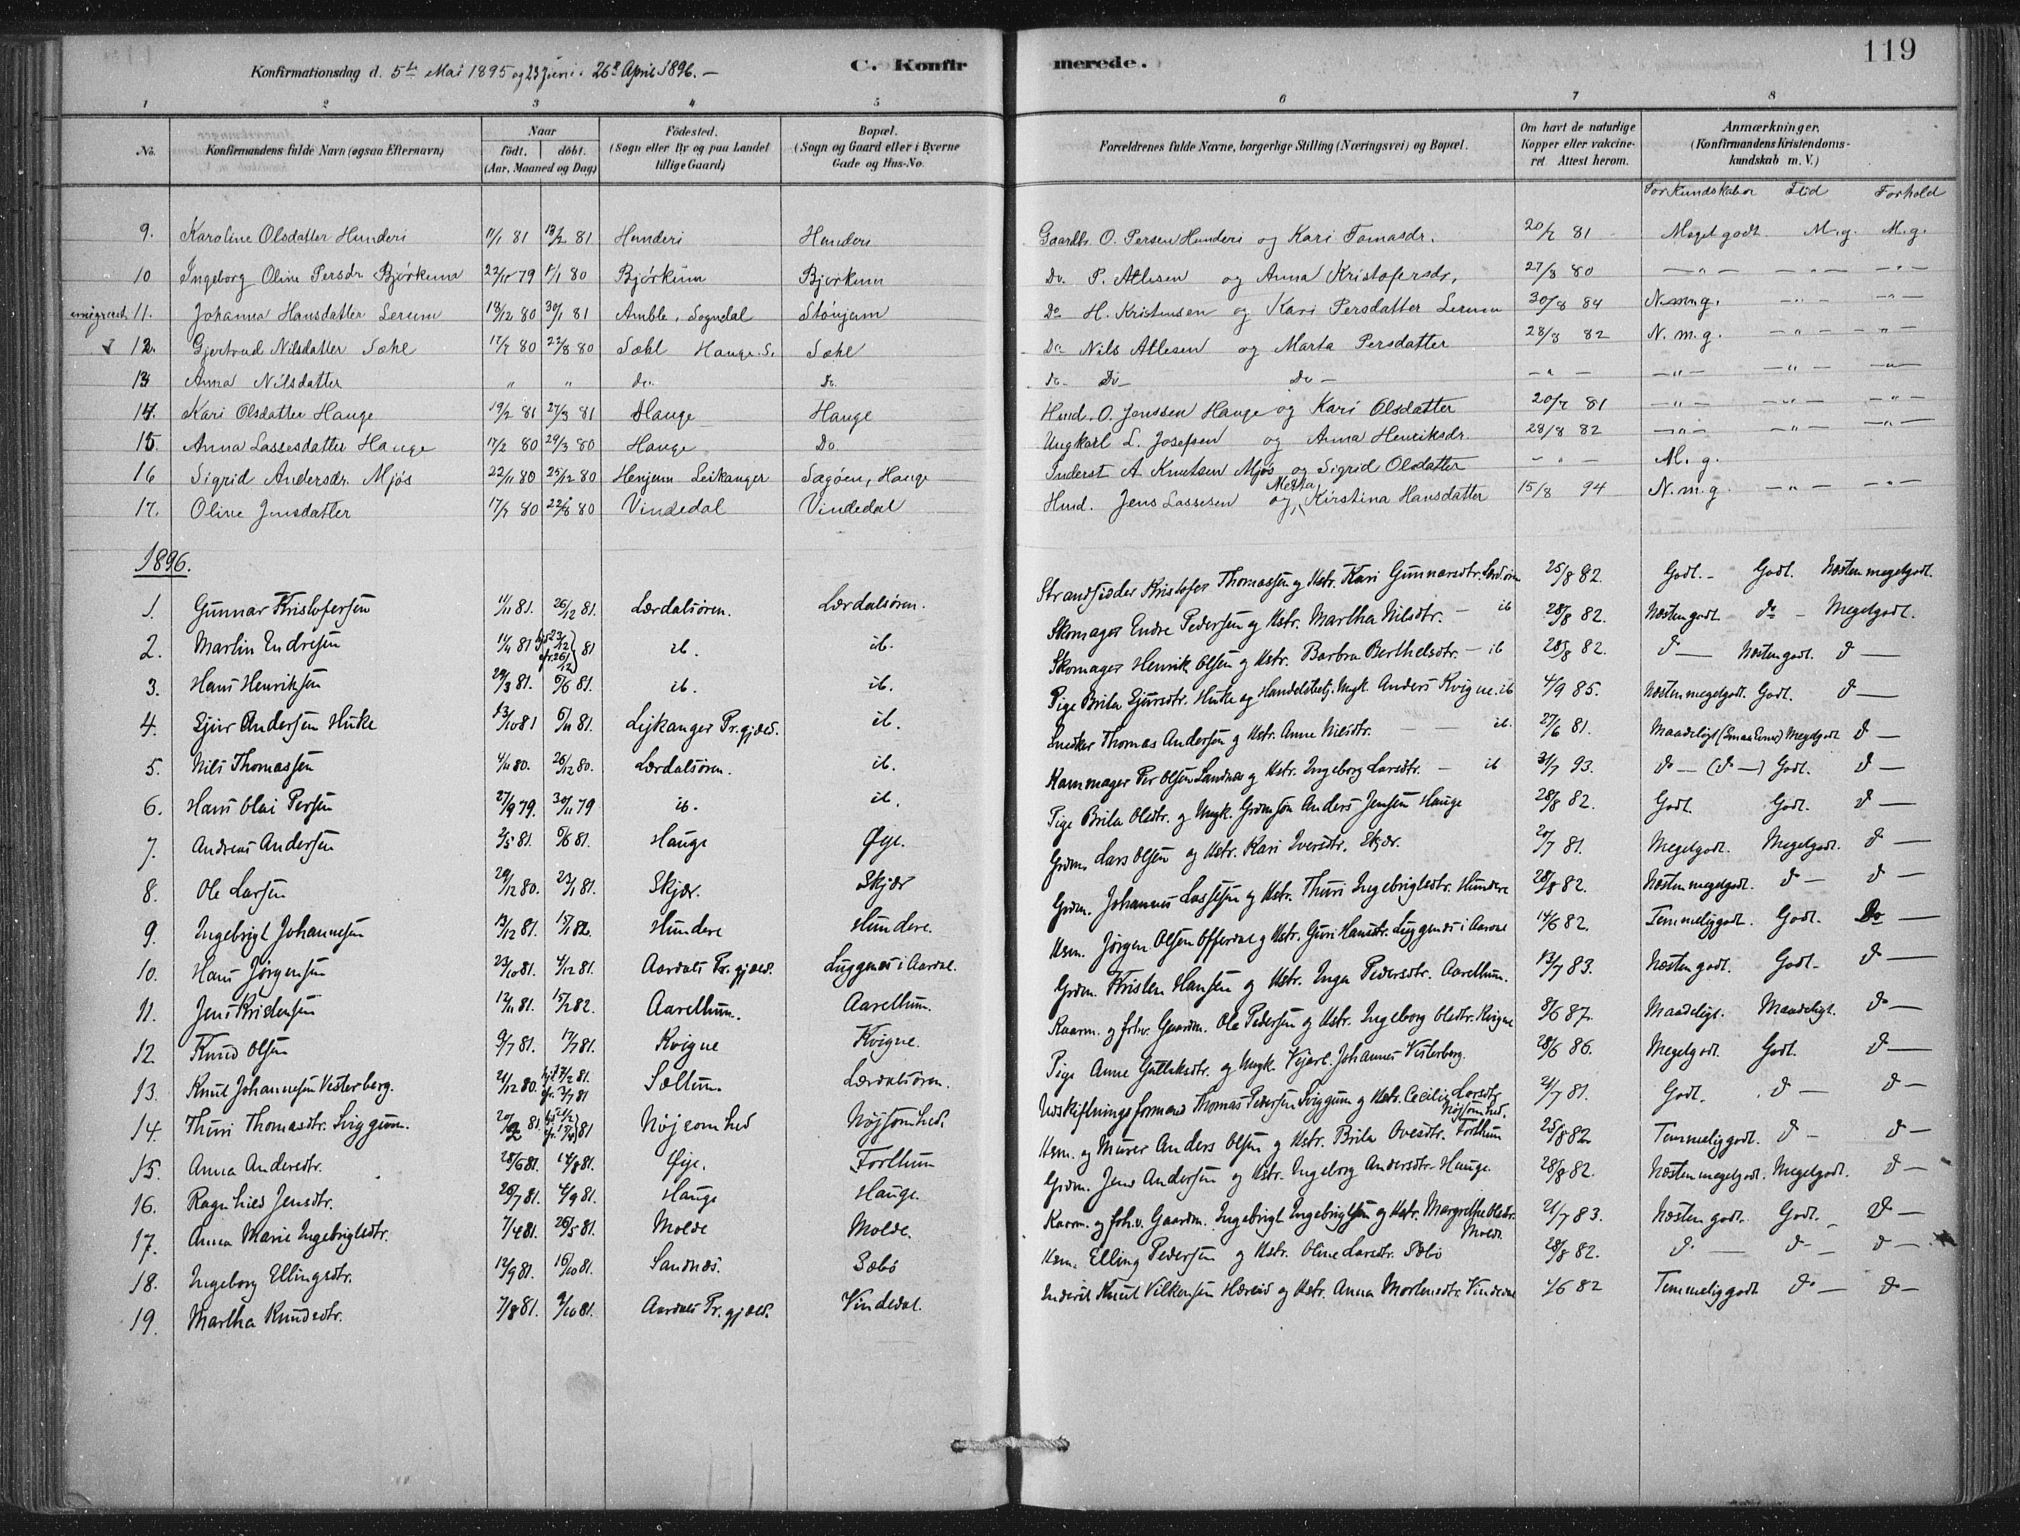 119
Konfirmationsdag d. 5te Mai 1895 og 23 Juni. 26de April 1896. —
C. Konfirmerede.
1 2 3 4 5 6 7 8
No. Konfirmandens fulde Navn (ogsaa Efternavn) Naar födt. döbt. (Aar, Maaned og Dag) Födested. (Sogn eller By og paa Landet tillige Gaard) Bopæl. (Sogn og Gaard eller i Byerne Gade og Hus-No. Forældrenes fulde Navne, borgerlige Stilling (Næringsvei) og Bopæl. Om havt de naturlige Kopper eller vakcineret. Attest herom. Anmærkninger. (Konfirmandens Kristendomskundskab m. V.)
For Kundskaber Flid Forhold
9. Karoline Olsdatter Hunderi 11/1 81 13/2 81 Hunderi Hunderi Gaardbr. O. Persen Hunderi og Kari Tomasdr. 20/7 81 Meget godt M.g. M.g.
10 Ingeborg Oline Persdr Bjørkum 22/11 79 1/1 80 Bjørkum Bjørkum Do. P. Atlesen og Anna Kristofersdr. 27/8 80 — " — — " — — " —
emigreret 11. Johanna Hansdatter Lerum 18/12 80 30/1 81 Amble, Sogndal Stønjum Do H. Kristensen og Kari Persdatter Lerum 30/8 84 N.m.g. — " — — " —
12. Gjertrud Nilsdatter Sæhl 17/7 80 22/8 80 Sæhl Hauge S. Sæhl Do Nils Atlesen og Marta Persdatter 28/8 82 N.m.g. — " — — " —
13 Anna Nilsdatter " " do. Do. do. Do — Do — — " — — " — — " — — " —
14. Kari Olsdatter Hauge 19/2 81 27/3 81 Hauge Hauge Husm. O. Jenssen Hauge og Kari Olsdatter 20/7 81 — " — — " — — " —
15. Anna Lassesdatter Hauge 17/2 80 29/3 80 Hauge Do. Ungkarl L. Josefsen og Anna Henriksdr. 28/8 82 — " — — " — — " —
16 Sigrid Andersdr. Mjøs 22/11 80 25/12 80 Henjum Leikanger Sagøen, Hauge Inderst A. Knutsen Mjøs og Sigrid Olsdatter — " — M.g.
17. Oline Jensdatter 17/7 80 22/8 80 Vindedal Vindedal Husm. Jens Lassesen og Metta Kirstina Hansdatter 15/8 94 N.m.g. — " — — " —
1896.
1. Gunnar Kristofersen 11/11 81. 26/12 81. Lærdalsøren. Lærdalsøren. Strandsidder Kristofer Thomassen og Kstr. Kari Gunnarsdtr. Lærd.øren 25/8 82. Godt. — Godt. Næsten megetgodt.
2. Martin Endresen 11/11 81 hjd 23/12 fr. 26/12 81 ib. ib. Skomager Endre Pedersen og Kstr. Martha Nilsdtr. — ib 28/8 82. Næsten godt do — Megetgodt.
3. Hans Henriksen 29/3 81. 6/6 81. ib. ib. Skomager Henrik Olsen og Kstr. Barbra Berthelsdtr. — ib 28/8 82. do — Næsten godt. do —
4. Sjur Andersen Huke 13/10 81 6/11 81. Lejkanger Pr.gjæld. ib. Pige Brita Sjursdtr. Huke og Handelsbetj. Ungk. Anders Kvigne. ib 4/9 85. Næsten megetgodt. Godt. do —
5. Nils Thomassen 4/11 80. 26/12 80. Lærdalsøren. ib. Snedker Thomas Andersen og Kstr. Anne Nilsdtr. — — ib. 27/6 81. Maadeligt (Smaa Evner) Megetgodt do —
6. Hans Olai Persen 27/9 79. 30/11 79 ib. ib. Kammager Per Olsen Sandnæs og Kstr. Ingeborg Larsdtr. — ib 31/7 93. do — (do —) Godt. do —
7. Andreas Andersen 3/5 81. 6/6 81. Hauge Øye. Pige Brita Olsdtr. og Ungk. Grdmsøn Anders Jensen Hauge 28/8 82. Godt. Godt. do —
8. Ole Larsen 29/12 80. 23/1 81. Skjær. Skjær Grdm. Lars Olsen og Kstr. Kari Iversdtr. Skjær. 20/7 81. Megetgodt. Megetgodt. do —
9. Ingebrigt Johannesen 13/12 81. 15/1 82. Hundere Hundere. Grdm. Johannes Lassesen og Kstr. Thuri Ingebrigtsdtr. Hundere 28/8 82. Næsten megetgodt. do — do —
10. Hans Jørgensen 23/10 81. 4/12 81. Aardals Pr.gjæld. Luggenes i Aardal. Hsm. Jørgen Olsen Offerdal og Kstr. Guri Hansdtr. Luggenes i Aardal 14/6 82. Temmeliggodt. Godt. Do —
11. Jens Kristensen 12/11 81. 15/2 82. Aarethun. Aarethun. Grdm. Kristen Hansen og Kstr. Inga Pedersdtr. Aarethun. 13/7 83. Næsten godt. Godt. do —
12 Knud Olsen 9/7 81. 17/7 81. Kvigne Kvigne. Kaarm. og forhv. Gaardm. Ole Pedersen og Kstr. Ingeborg Olsdtr. Kvigne 8/6 87. Maadeligt. Maadeligt. do —
13. Knut Johannesen Vesterberg. 21/12 80. hjd 17/2 81. fr. 3/7 81 Sæltun. Lærdalsøren. Pige Anne Gulleksdtr. og Ungk. Vejarb. Johannes Vesterberg. 28/6 86. Megetgodt. Godt. do —
14. Thuri Thomasdtr. Sviggum. 20/2 81 81 Nøjsomhed Nøjsomhed. Udskiftningsformand Thomas Pedersen Sviggum og Kstr. Cecilie Larsdtr Nøjsomhed. 21/7 81. Godt. do — do —
15. Anna Andersdtr. 28/6 81. 14/8 81. Øye. Forthun Hsm. og Murer Anders Olsen og Kstr. Brita Ovesdtr. Forthun 25/8 82. Temmeliggodt. do — do —
16. Ragnhild Jensdtr. 26/7 81. 4/9 81. Hauge Hauge. Grdm. Jens Andersen og Kstr. Ingeborg Andersdtr. Hauge. 28/8 82. Næsten megetgodt. Megetgodt. do —
17. Anna Marie Ingebrigtsdtr. 7/4 81. 26/5 81. Molde Molde. Kaarm. og forhv. Gaardm. Ingebrigt Ingebrigtsen og Kstr. Margrethe Olsdtr. Molde 21/7 83. Næsten godt. Godt. do —
18. Ingeborg Ellingsdtr. 12/9 81. 16/10 81. Sandnæs. Sæbø Hsm. Elling Pedersen og Kstr. Oline Larsdtr. Sæbø 28/8 82. do — do — do —
19. Martha Knudsdtr. 7/8 81. 2/10 81. Aardals Pr.gjæld. Vindedal. Inderst Knut Vilkensen Hæreid og Kstr. Anna Mortensdtr. Vindedal 1/6 82 Temmeliggodt do — do —